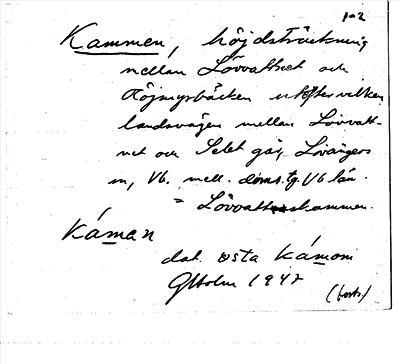 1-2
Kammen, höjdsträckning
mellan Lövvattnet och
Röjmyrbäcken utefter vilken
landsvägen mellan Lövvatt-
net och Selet går, Lövångers
sn, Vb. mell. doms. tg. Vb län.
= Lövvattskammen.
Káman
dat. østa kámom
GHolm 1947
(forts.)